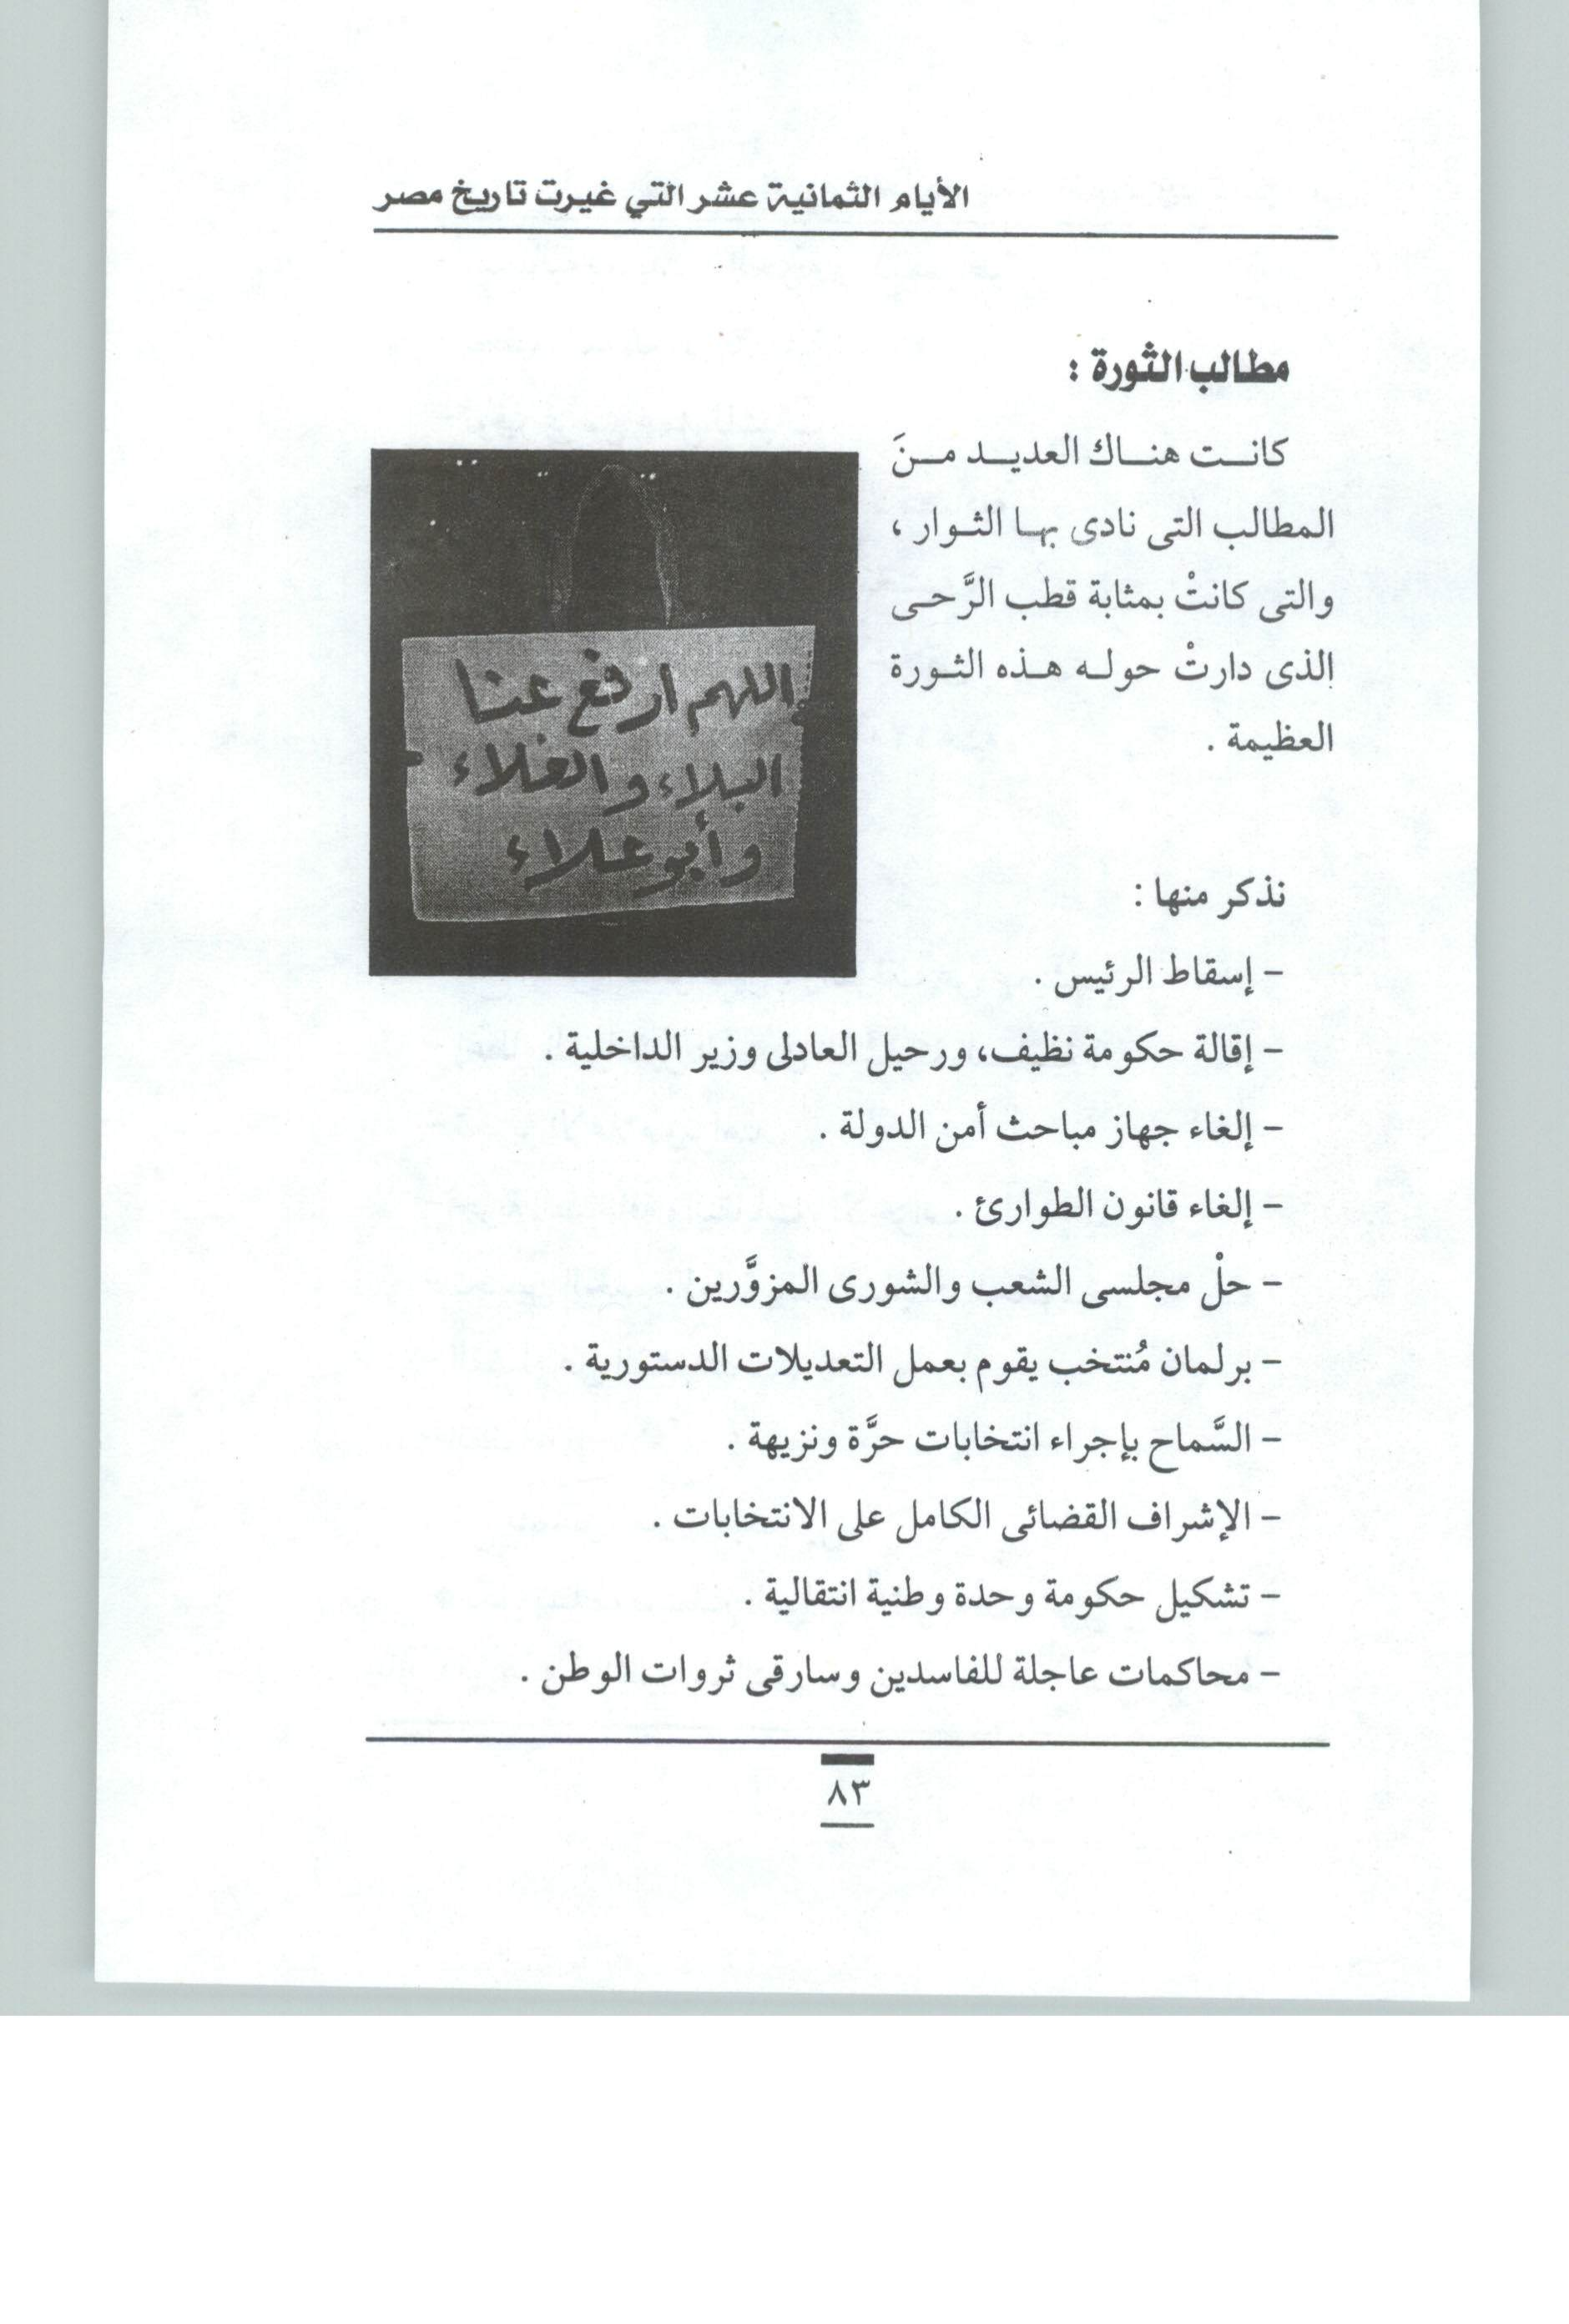 الأيام الثمانية عشر التي غيرت تاريخ مصر
مطالب الثورة :
كانت هناك العديد منَ
المطالب التى نادى بها الثوار ،
والتى كانتْ بمثابة قطب الرَّحى
الذى دارتْ حوله هذه الثورة
العظيمة .
اللهم ارفع عنا
البلاء والغلاء
وأبو علاء
نذكر منها :
– إسقاط الرئيس .
– إقالة حكومة نظيف، ورحيل العادلى وزير الداخلية .
– إلغاء جهاز مباحث أمن الدولة .
– إلغاء قانون الطوارئ .
– حلْ مجلسى الشعب والشورى المزوَّرين .
– برلمان مُنتخب يقوم بعمل التعديلات الدستورية .
– السَّماح بإجراء انتخابات حرَّة ونزيهة .
– الإشراف القضائى الكامل على الانتخابات .
– تشكيل حكومة وحدة وطنية انتقالية .
– محاكمات عاجلة للفاسدين وسارقى ثروات الوطن .
٨٣